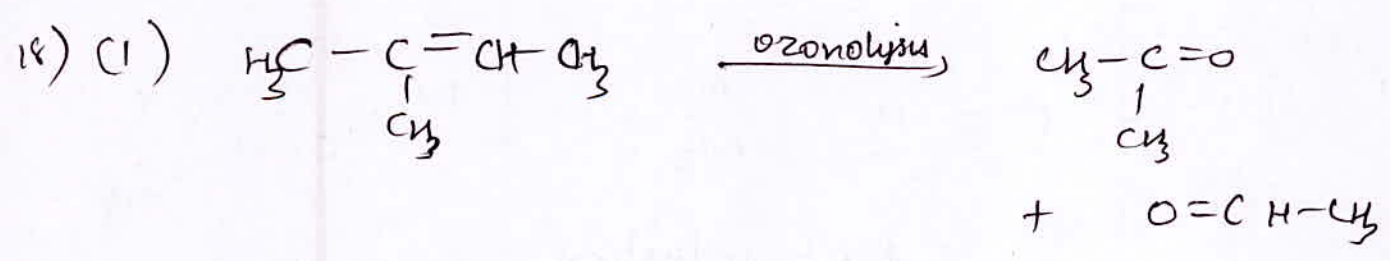 18) (1) H3C - C = CH - CH3 ozonolysis CH3 - C = O
CH3 CH3
+ O = CH - CH3